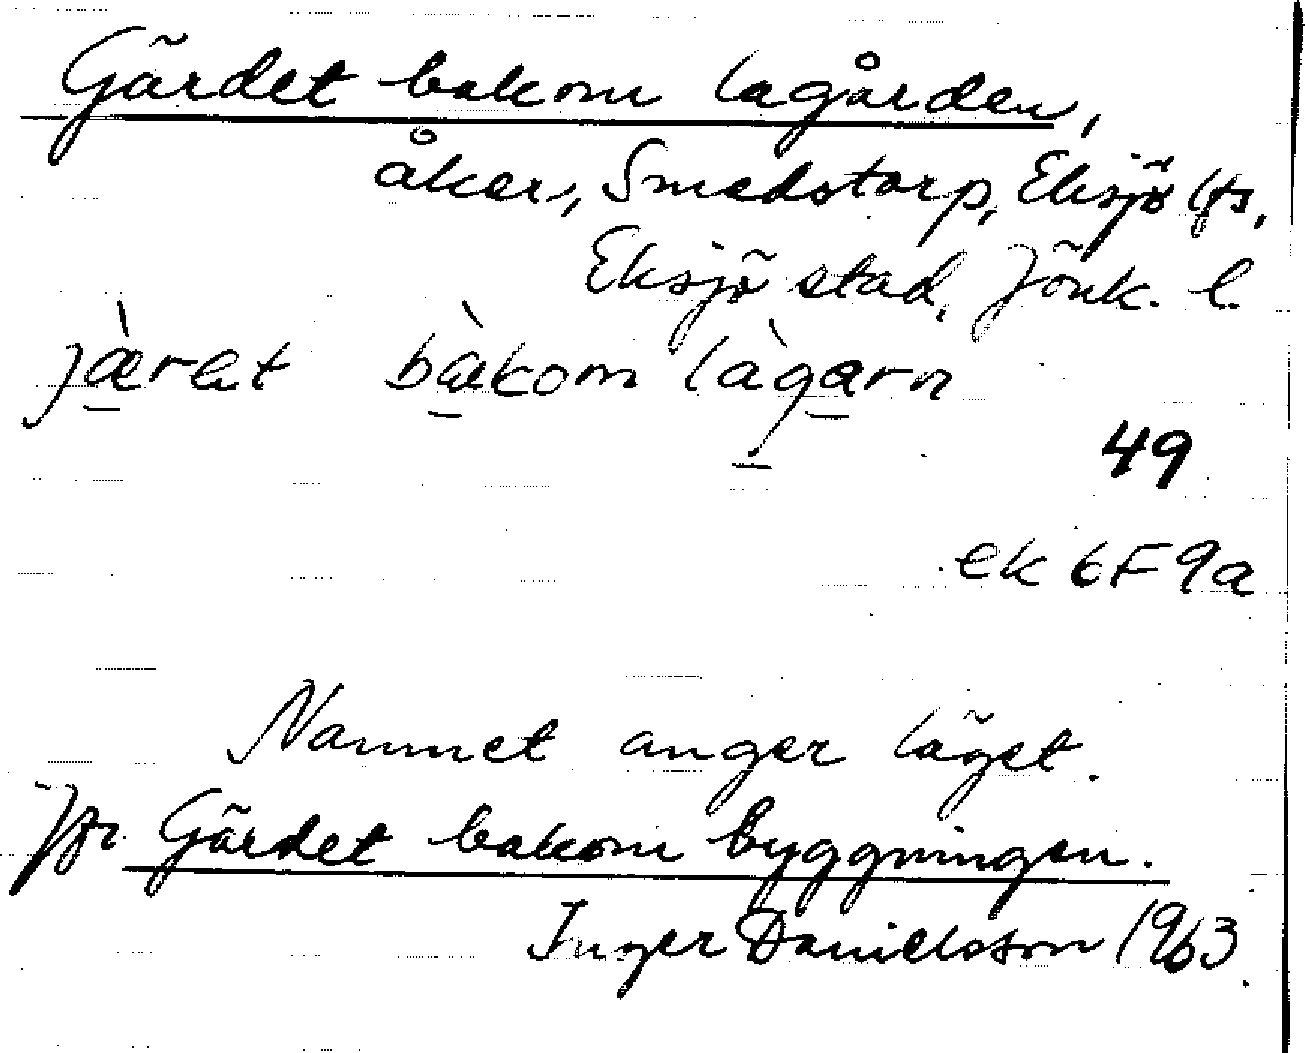 Gärdet bakom lagården,
åker, Smedstorp, Eksjö lfs,
Eksjö stad, Jönk. l.
jæ̀ret bàkom làgarn
49
ek 6F9a
Namnet anger läget.
Jfr Gärdet bakom byggningen.
Inger Danielsson 1963